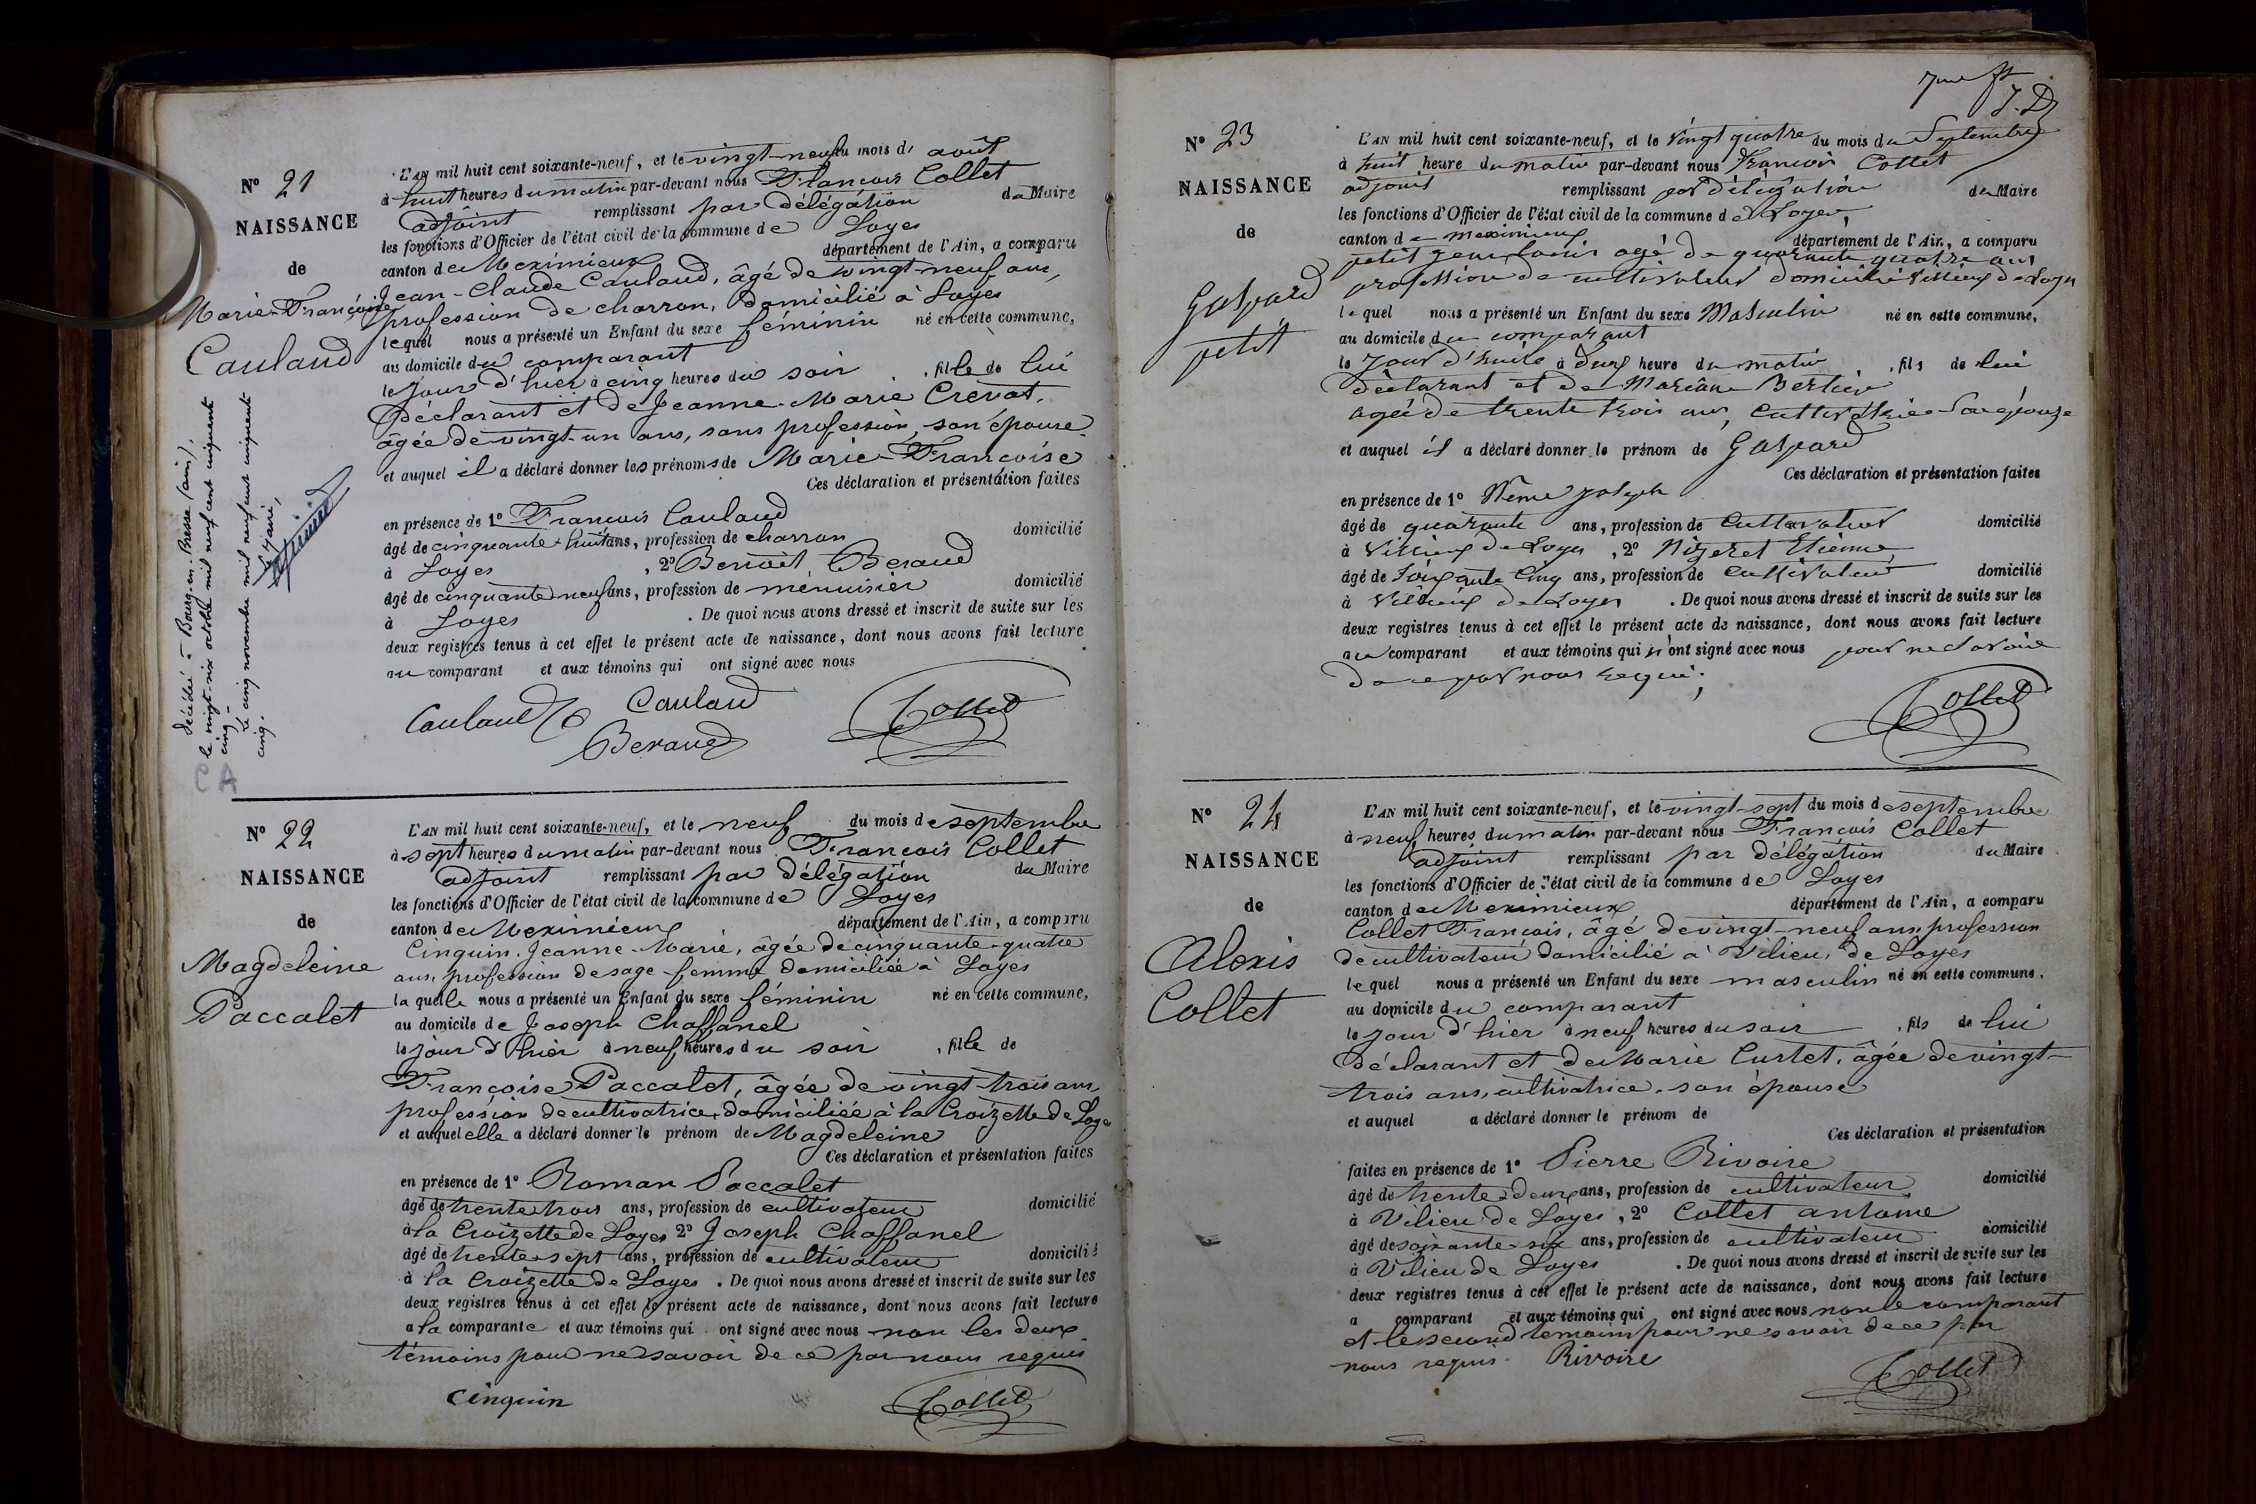 N° 21
NAISSANCE
de
Marie-Françoise
Cauland
décédée à Bourg-en-Bresse (ain),
le vingt-six octobre mil neuf cent cinquante
cinq -
Le cinq novembre mil neuf cent cinquante
cinq.
Le Maire,
CA
L'AN mil huit cent soixante-neuf, et le vingt-neuf du mois d' août
à huit heures du matin par-devant nous François Collet
adjoint remplissant par délégation du Maire
les fonctions d'Officier de l'état civil de la commune de Loyes
canton de Meximieux département de l'Ain, a comparu
Jean-Claude Cauland, âgé de vingt-neuf ans,
profession de charron, domicilié à Loyes
lequel nous a présenté un Enfant du sexe féminin né en cette commune,
au domicile du comparant
le jour d'hier à cinq heures du soir , fille de lui
Déclarant et de Jeanne-Marie Crévat,
âgée de vingt-un ans, sans profession, son épouse
et auquel il a déclaré donner les prénoms de Marie-Françoise
Ces déclaration et présentation faites
en présence de 1° François Cauland
âgé de cinquante-huit ans, profession de charron domicilié
à Loyes , 2° Benoit Beraud
âgé de cinquante-neuf ans, profession de menuisier domicilié
à Loyes . De quoi nous avons dressé et inscrit de suite sur les
deux registres tenus à cet effet le présent acte de naissance, dont nous avons fait lecture
au comparant et aux témoins qui ont signé avec nous
Cauland Cauland Collet
Beraud
N° 22
NAISSANCE
de
Magdeleine
Paccalet
L'AN mil huit cent soixante-neuf, et le neuf du mois de septembre
à sept heures du matin par-devant nous François Collet
adjoint remplissant par délégation du Maire
les fonctions d'Officier de l'état civil de la commune de Loyes
canton de Meximieux département de l'Ain, a comparu
Cinquin Jeanne-Marie, âgée de cinquante-quatre
ans, profession de sage-femme domiciliée à Loyes
laquelle nous a présenté un Enfant du sexe féminin né en cette commune,
au domicile de Joseph Chaffanel
le jour d'hier à neuf heures du soir , fille de
Françoise Paccalet, âgée de vingt-trois ans
profession de cultivatrice domiciliée à la Croizette de Loyes
et auquel elle a déclaré donner le prénom de Magdeleine
Ces déclaration et présentation faites
en présence de 1° Roman Paccalet
âgé de trente trois ans, profession de cultivateur domicilié
à la Croizette de Loyes 2° Joseph Chaffanel
âgé de trente-sept ans, profession de cultivateur domicilié
à la Croizette de Loyes . De quoi nous avons dressé et inscrit de suite sur les
deux registres tenus à cet effet le présent acte de naissance, dont nous avons fait lecture
a la comparante et aux témoins qui ont signé avec nous non les deux
témoins pour ne savoir de ce par nous requis
Cinquin Collet
N° 23
NAISSANCE
de
Gaspard
petit
L'AN mil huit cent soixante-neuf, et le vingt quatre du mois du Septembre
à huit heure du matin par-devant nous François Collet
adjoint remplissant par délégation du Maire
les fonctions d'Officier de l'état civil de la commune d e Loyes,
canton de meximieux département de l'Ain, a comparu
petit Jean louis agé de quarante quatre ans
profession de cultivateur domicilié villieux de Loyes
lequel nous a présenté un Enfant du sexe Masculin né en cette commune,
au domicile du comparant
le jour d'huie à deux heure du matin , fils de lui
déclarant et de Mariane Bertier
agée de trente trois ans, Cultivatrice Son épouze
et auquel il a déclaré donner le prénom de Gaspard
Ces déclaration et présentation faites
en présence de 1° joseph
âgé de quarante ans, profession de Cultivateur domicilié
à Villieux de Loyes , 2° Nizeret Etienne
âgé de Soixante Cinq ans, profession de Cultivateur domicilié
à Villieux de Loyes . De quoi nous avons dressé et inscrit de suite sur les
deux registres tenus à cet effet le présent acte de naissance, dont nous avons fait lecture
au comparant et aux témoins qui n'ont signé avec nous pour ne Savoir
de ce par nous requi.
Collet
N° 24
NAISSANCE
de
Alexis
Collet
L'AN mil huit cent soixante-neuf, et le vingt-sept du mois de septembre
à neuf heures du matin par-devant nous François Collet
adjoint remplissant par délégation du Maire
les fonctions d'Officier de l'état civil de la commune de Loyes
canton de Meximieux département de l'Ain, a comparu
Collet François, âgé de vingt-neuf ans, profession
de cultivateur domicilié à Vilieu, de Loyes
lequel nous a présenté un Enfant du sexe masculin né en cette commune,
au domicile du comparant
le jour d'hier à neuf heures du soir , fils de lui
Déclarant et de Marie Curtet, âgée de vingt-
trois ans, cultivatrice, son épouse
et auquel a déclaré donner le prénom de
Ces déclaration et présentation
faites en présence de 1° Pierre Rivoire
âgé de trente-deux ans, profession de cultivateur domicilié
à Vilieu de Loyes , 2° Collet antoine
âgé de soixante-six ans, profession de cultivateur domicilié
à Vilieu de Loyes . De quoi nous avons dressé et inscrit de suite sur les
deux registres tenus à cet effet le présent acte de naissance, dont nous avons fait lecture
a comparant et aux témoins qui ont signé avec nous non le comparant
et le second temoins pour ne savoir de ce par
nous requis. Rivoire Collet